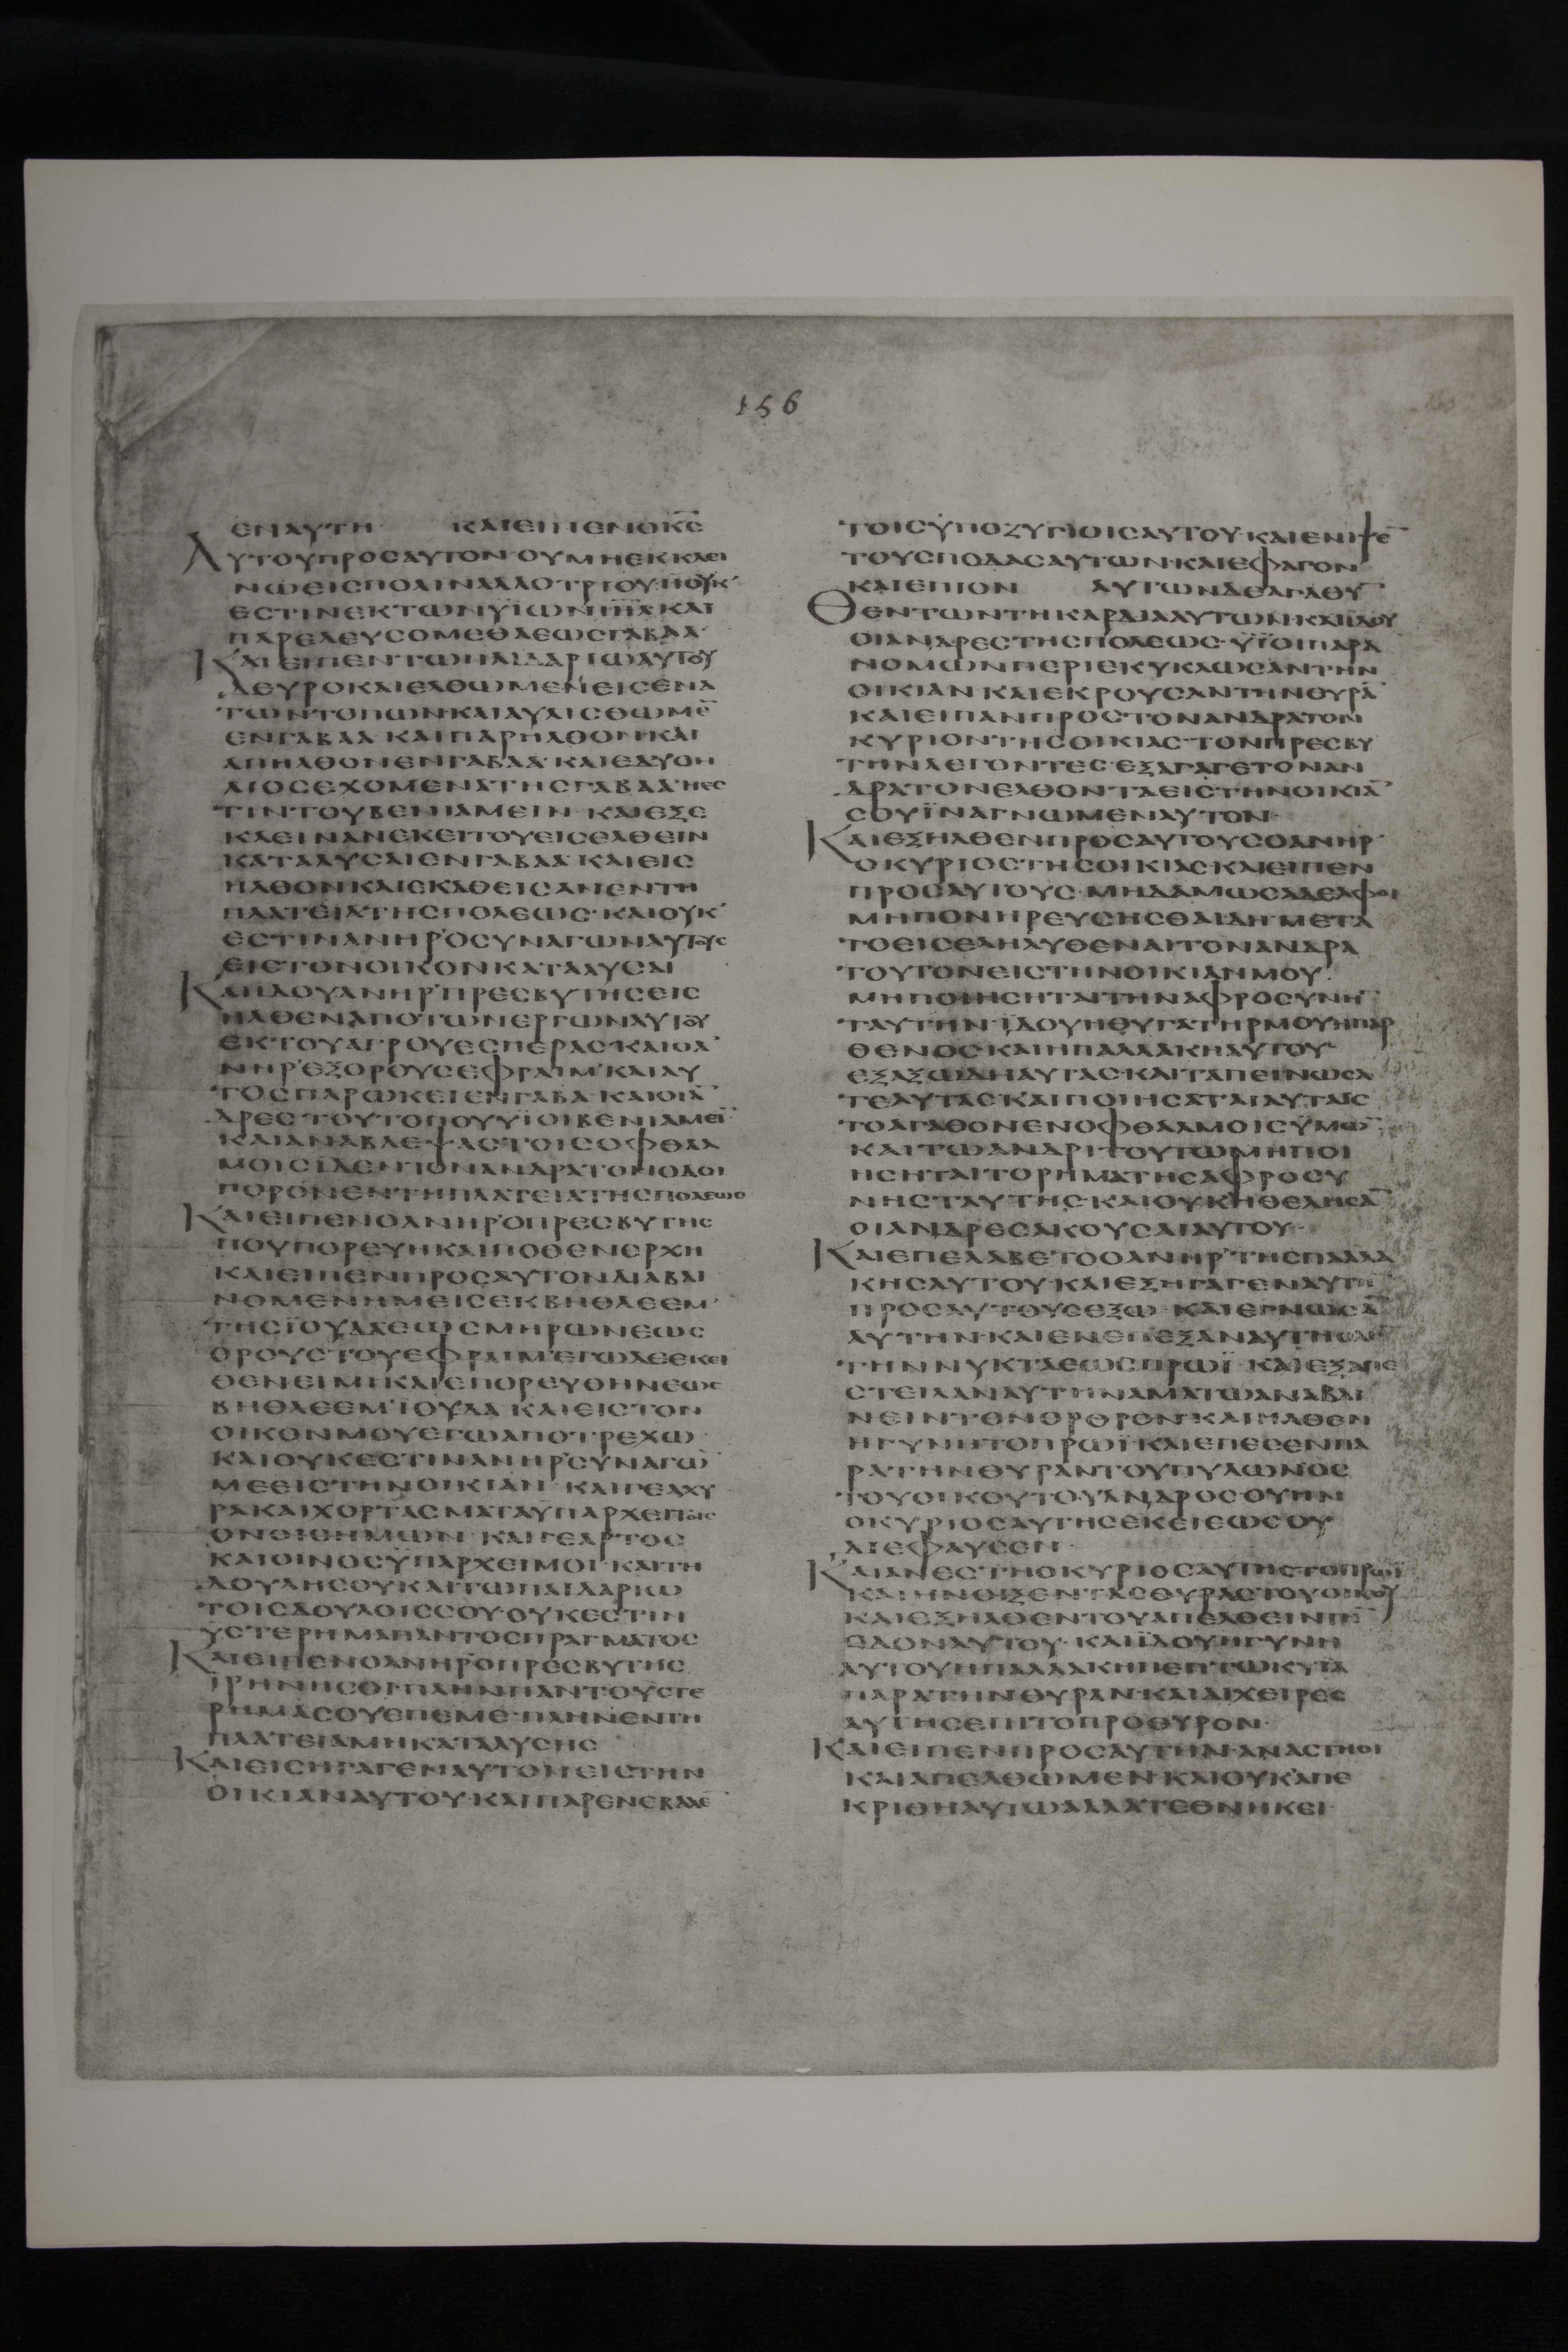 156
ΕΝΑΥΤΗ· ΚΑΙΕΙΠΕΝΟΚ̅Ϲ̅
ΑΥΤΟΥΠΡΟϹΑΥΤΟΝ·ΟΥΜΗΕΚΚΛΕΙ
ΝΩΕΙϹΠΟΛΙΝΑΛΛΟΤΡΙΟΥ·ΗΟΥΚ
ΕϹΤΙΝΕΚΤΩΝΥΪΩΝΙ̅Η̅Λ̅ΚΑΙ
ΠΑΡΕΛΕΥϹΟΜΕΘΑΕΩϹΓΑΒΑΑ·
ΚΑΙΕΙΠΕΝΤΩΠΑΙΔΑΡΙΩΑΥΤΟΥ
ΔΕΥΡΟΚΑΙΕΛΘΩΜΕΝΕΙϹΕΝΑ
ΤΩΝΤΟΠΩΝΚΑΙΑΥΛΙϹΘΩΜΕ̅
ΕΝΓΑΒΑΑ·ΚΑΙΠΑΡΗΛΘΟΝΚΑΙ
ΑΠΗΛΘΟΝΕΝΓΑΒΑΑ·ΚΑΙΕΔΥΟΗ
ΛΙΟϹΕΧΟΜΕΝΑΤΗϹΓΑΒΑΑ·ΗΕϹ
ΤΙΝΤΟΥΒΕΝΙΑΜΕΙΝ·ΚΑΙΕΞΕ
ΚΛΕΙΝΑΝΕΚΕΙΤΟΥΕΙϹΕΛΘΕΙΝ
ΚΑΤΑΛΥϹΑΙΕΝΓΑΒΑΑ·ΚΑΙΕΙϹ
ΗΛΘΟΝΚΑΙΕΚΑΘΕΙϹΑΝΕΝΤΗ
ΠΛΑΤΕΙΑΤΗϹΠΟΛΕΩϹ·ΚΑΙΟΥΚ
ΕϹΤΙΝΑΝΗΡΟϹΥΝΑΓΩΝΑΥΤΟΥϹ
ΕΙϹΤΟΝΟΙΚΟΝΚΑΤΑΛΥϹΑΙ
ΚΑΙΙΔΟΥΑΝΗΡΠΡΕϹΒΥΤΗϹΕΙϹ
ΗΛΘΕΝΑΠΟΤΩΝΕΡΓΩΝΑΥΤΟΥ
ΕΚΤΟΥΑΓΡΟΥΕϹΠΕΡΑϹ·ΚΑΙΟΑ
ΝΗΡΕΞΟΡΟΥϹΕΦΡΑΙΜ·ΚΑΙΑΥ
ΤΟϹΠΑΡΩΚΕΙΕΝΓΑΒΑ·ΚΑΙΟΙΑ̅
ΔΡΕϹΤΟΥΤΟΠΟΥΥΪΟΙΒΕΝΙΑΜΕΙ̅
ΚΑΙΑΝΑΒΛΕΨΑϹΤΟΙϹΟΦΘΑΛ
ΜΟΙϹΙΔΕΝΤΟΝΑΝΔΡΑΤΟΝΟΔΟΙ
ΠΟΡΟΝΕΝΤΗΠΛΑΤΕΙΑΤΗϹΠΟΛΕΩϹ
ΚΑΙΕΙΠΕΝΟΑΝΗΡΟΠΡΕϹΒΥΤΗϹ
ΠΟΥΠΟΡΕΥΗΚΑΙΠΟΘΕΝΕΡΧΗ
ΚΑΙΕΙΠΕΝΠΡΟϹΑΥΤΟΝΔΙΑΒΑΙ
ΝΟΜΕΝΗΜΕΙϹΕΚΒΗΘΛΕΕΜ
ΤΗϹΪΟΥΔΑΕΩϹΜΗΡΩΝΕΩϹ
ΟΡΟΥϹΤΟΥΕΦΡΑΙΜ·ΕΓΩΔΕΕΚΕΙ
ΘΕΝΕΙΜΙ·ΚΑΙΕΠΟΡΕΥΘΗΝΕΩϹ
ΒΗΘΛΕΕΜΪΟΥΔΑ·ΚΑΙΕΙϹΤΟΝ
ΟΙΚΟΝΜΟΥΕΓΩΑΠΟΤΡΕΧΩ·
ΚΑΙΟΥΚΕϹΤΙΝΑΝΗΡϹΥΝΑΓΩ̅
ΜΕΕΙϹΤΗΝΟΙΚΙΑΝ·ΚΑΙΓΕΑΧΥ
ΡΑΚΑΙΧΟΡΤΑϹΜΑΤΑΥΠΑΡΧΕΙΤΟΙϹ
ΟΝΟΙϹΗΜΩΝ·ΚΑΙΓΕΑΡΤΟϹ
ΚΑΙΟΙΝΟϹΫΠΑΡΧΕΙΜΟΙ·ΚΑΙΤΗ
ΔΟΥΛΗϹΟΥΚΑΙΤΩΠΑΙΔΑΡΙΩ
ΤΟΙϹΔΟΥΛΟΙϹϹΟΥ·ΟΥΚΕϹΤΙΝ
ΥϹΤΕΡΗΜΑΠΑΝΤΟϹΠΡΑΓΜΑΤΟϹ
ΚΑΙΕΙΠΕΝΟΑΝΗΡΟΠΡΕϹΒΥΤΗϹ
ΙΡΗΝΗϹΟΙ·ΠΛΗΝΠΑΝΤΟΥϹΤΕ
ΡΗΜΑϹΟΥΕΠΕΜΕ·ΠΛΗΝΕΝΤΗ
ΠΛΑΤΕΙΑΜΗΚΑΤΑΛΥϹΗϹ
ΚΑΙΕΙϹΗΓΑΓΕΝΑΥΤΟΝΕΙϹΤΗΝ
ΟΙΚΙΑΝΑΥΤΟΥ·ΚΑΙΠΑΡΕΝΕΒΑΛΕ
ΤΟΙϹΫΠΟΖΥΓΙΟΙϹΑΥΤΟΥ·ΚΑΙΕΝΙΨΕ̅
ΤΟΥϹΠΟΔΑϹΑΥΤΩΝ·ΚΑΙΕΦΑΓΟΝ
ΚΑΙΕΠΙΟΝ ΑΥΤΩΝΔΕΑΓΑΘΥ̅
ΘΕΝΤΩΝΤΗΚΑΡΔΙΑΑΥΤΩΝ·ΚΑΙΪΔΟΥ
ΟΙΑΝΔΡΕϹΤΗϹΠΟΛΕΩϹ·ΥΪΟΙΠΑΡΑ
ΝΟΜΩΝΠΕΡΙΕΚΥΚΛΩϹΑΝΤΗΝ
ΟΙΚΙΑΝΚΑΙΕΚΡΟΥϹΑΝΤΗΝΘΥΡΑ̅
ΚΑΙΕΙΠΑΝΠΡΟϹΤΟΝΑΝΔΡΑΤΟΝ
ΚΥΡΙΟΝΤΗϹΟΙΚΙΑϹ·ΤΟΝΠΡΕϹΒΥ
ΤΗΝΛΕΓΟΝΤΕϹ·ΕΞΑΓΑΓΕΤΟΝΑΝ
ΔΡΑΤΟΝΕΛΘΟΝΤΑΕΙϹΤΗΝΟΙΚΙΑ̅
ϹΟΥΪΝΑΓΝΩΜΕΝΑΥΤΟΝ·
ΚΑΙΕΞΗΛΘΕΝΠΡΟϹΑΥΤΟΥϹΟΑΝΗΡ
ΟΚΥΡΙΟϹΤΗϹΟΙΚΙΑϹΚΑΙΕΙΠΕΝ
ΠΡΟϹΑΥΤΟΥϹ·ΜΗΔΑΜΩϹΑΔΕΛΦΟΙ
ΜΗΠΟΝΗΡΕΥϹΗϹΘΑΙΔΗ·ΜΕΤΑ
ΤΟΕΙϹΕΛΗΛΥΘΕΝΑΙΤΟΝΑΝΔΡΑ
ΤΟΥΤΟΝΕΙϹΤΗΝΟΙΚΙΑΝΜΟΥ·
ΜΗΠΟΙΗϹΗΤΑΙΤΗΝΑΦΡΟϹΥΝΗ̅
ΤΑΥΤΗΝ·ΪΔΟΥΗΘΥΓΑΤΗΡΜΟΥΗΠΑΡ
ΘΕΝΟϹΚΑΙΗΠΑΛΛΑΚΗΑΥΤΟΥ·
ΕΞΑΞΩΔΗΑΥΤΑϹ·ΚΑΙΤΑΠΕΙΝΩϹΑ
ΤΕΑΥΤΑϹ·ΚΑΙΠΟΙΗϹΑΤΑΙΑΥΤΑΙϹ
ΤΟΑΓΑΘΟΝΕΝΟΦΘΑΛΜΟΙϹΫΜΩ̅·
ΚΑΙΤΩΑΝΔΡΙΤΟΥΤΩΜΗΠΟΙ
ΗϹΗΤΑΙΤΟΡΗΜΑΤΗϹΑΦΡΟϹΥ
ΝΗϹΤΑΥΤΗϹ·ΚΑΙΟΥΚΗΘΕΛΗϹΑ̅
ΟΙΑΝΔΡΕϹΑΚΟΥϹΑΙΑΥΤΟΥ·
ΚΑΙΕΠΕΛΑΒΕΤΟΟΑΝΗΡΤΗϹΠΑΛΛΑ
ΚΗϹΑΥΤΟΥ·ΚΑΙΕΞΗΓΑΓΕΝΑΥΤΗ̅
ΠΡΟϹΑΥΤΟΥϹΕΞΩ·ΚΑΙΕΓΝΩϹΑ̅
ΑΥΤΗΝ·ΚΑΙΕΝΕΠΕΞΑΝΑΥΤΗΟΛΗ̅
ΤΗΝΝΥΚΤΑΕΩϹΠΡΩΪ·ΚΑΙΕΞΑΠΕ
ϹΤΕΙΛΑΝΑΥΤΗΝΑΜΑΤΩΑΝΑΒΑΙ
ΝΕΙΝΤΟΝΟΡΘΡΟΝ·ΚΑΙΗΛΘΕΝ
ΗΓΥΝΗΤΟΠΡΩΪ·ΚΑΙΕΠΕϹΕΝΠΑ
ΡΑΤΗΝΘΥΡΑΝΤΟΥΠΥΛΩΝΟϹ
ΤΟΥΟΙΚΟΥΤΟΥΑΝΔΡΟϹ·ΟΥΗΝ
ΟΚΥΡΙΟϹΑΥΤΗϹΕΚΕΙΕΩϹΟΥ
ΔΙΕΦΑΥϹΕΝ·
ΚΑΙΑΝΕϹΤΗΟΚΥΡΙΟϹΑΥΤΗϹΤΟΠΡΩΪ
ΚΑΙΗΝΟΙΞΕΝΤΑϹΘΥΡΑϹΤΟΥΟΙΚΟΥ
ΚΑΙΕΞΗΛΘΕΝΤΟΥΑΠΕΛΘΕΙΝΤΗ̅
ΟΔΟΝΑΥΤΟΥ·ΚΑΙΪΔΟΥΗΓΥΝΗ
ΑΥΤΟΥΗΠΑΛΛΑΚΗΠΕΠΤΩΚΥΙΑ
ΠΑΡΑΤΗΝΘΥΡΑΝ·ΚΑΙΑΙΧΕΙΡΕϹ
ΑΥΤΗϹΕΠΙΤΟΠΡΟΘΥΡΟΝ·
ΚΑΙΕΙΠΕΝΠΡΟϹΑΥΤΗΝ·ΑΝΑϹΤΗΘΙ
ΚΑΙΑΠΕΛΘΩΜΕΝ·ΚΑΙΟΥΚΑΠΕ
ΚΡΙΘΗΑΥΤΩΑΛΛΑΤΕΘΝΗΚΕΙ·